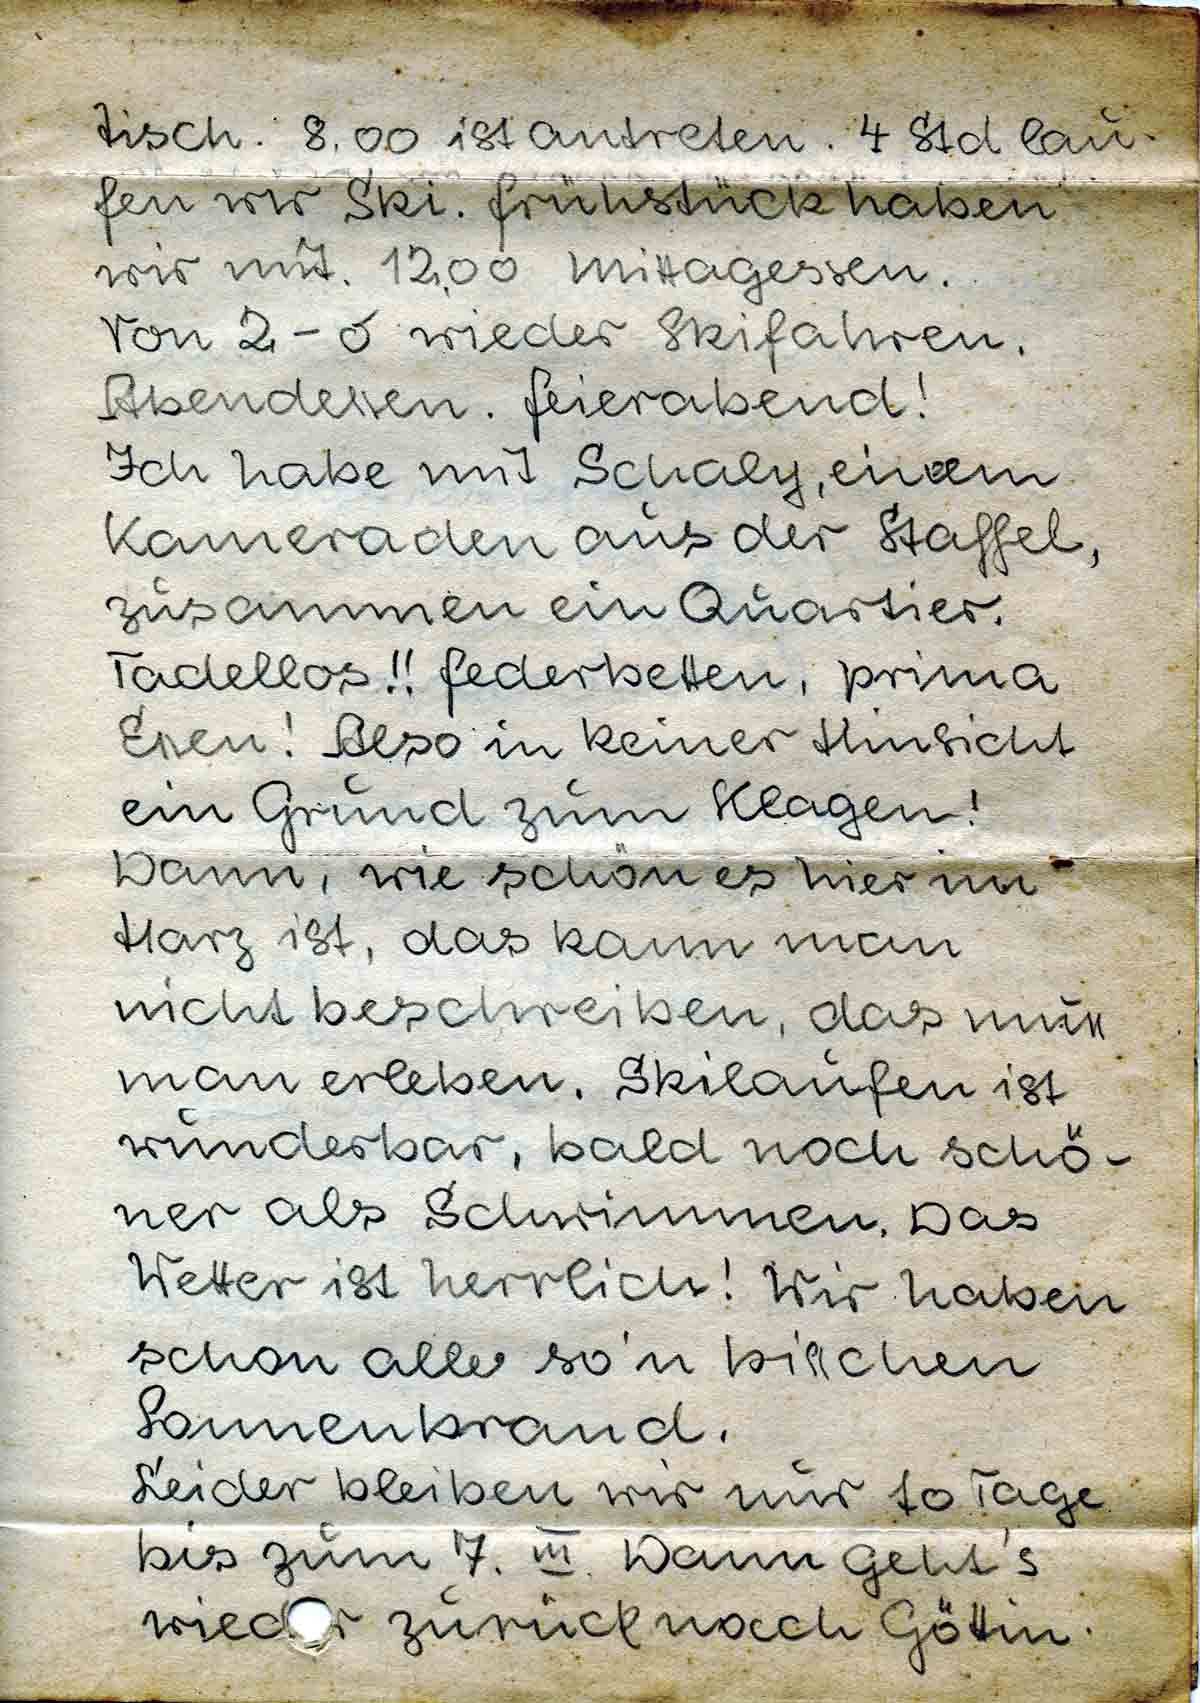 tisch. 8.00 ist antreten. 4 Std lau-
fen wir Ski. Frühstück haben
wir mit. 12,00 Mittagessen.
Von 2-6 wieder Skifahren.
Abendessen. Feierabend!
Ich habe mit Schaly, einem
Kameraden aus der Staffel,
zusammen ein Quartier.
Tadellos!! Federbetten, prima
Essen! Also in keiner Hinsicht
ein Grund zum Klagen!
Dann, wie schön es hier im
Harz ist, das kann man
nicht beschreiben, das muß
man erleben. Skilaufen ist
wunderbar, bald noch schö-
ner als Schwimmen. Das
Wetter ist herrlich! Wir haben
schon alle so'n bißchen
Sonnenbrand.
Leider bleiben wir nur 10 Tage
bis zum 7. III. Dann geht's
wieder zurück nach Göttin-